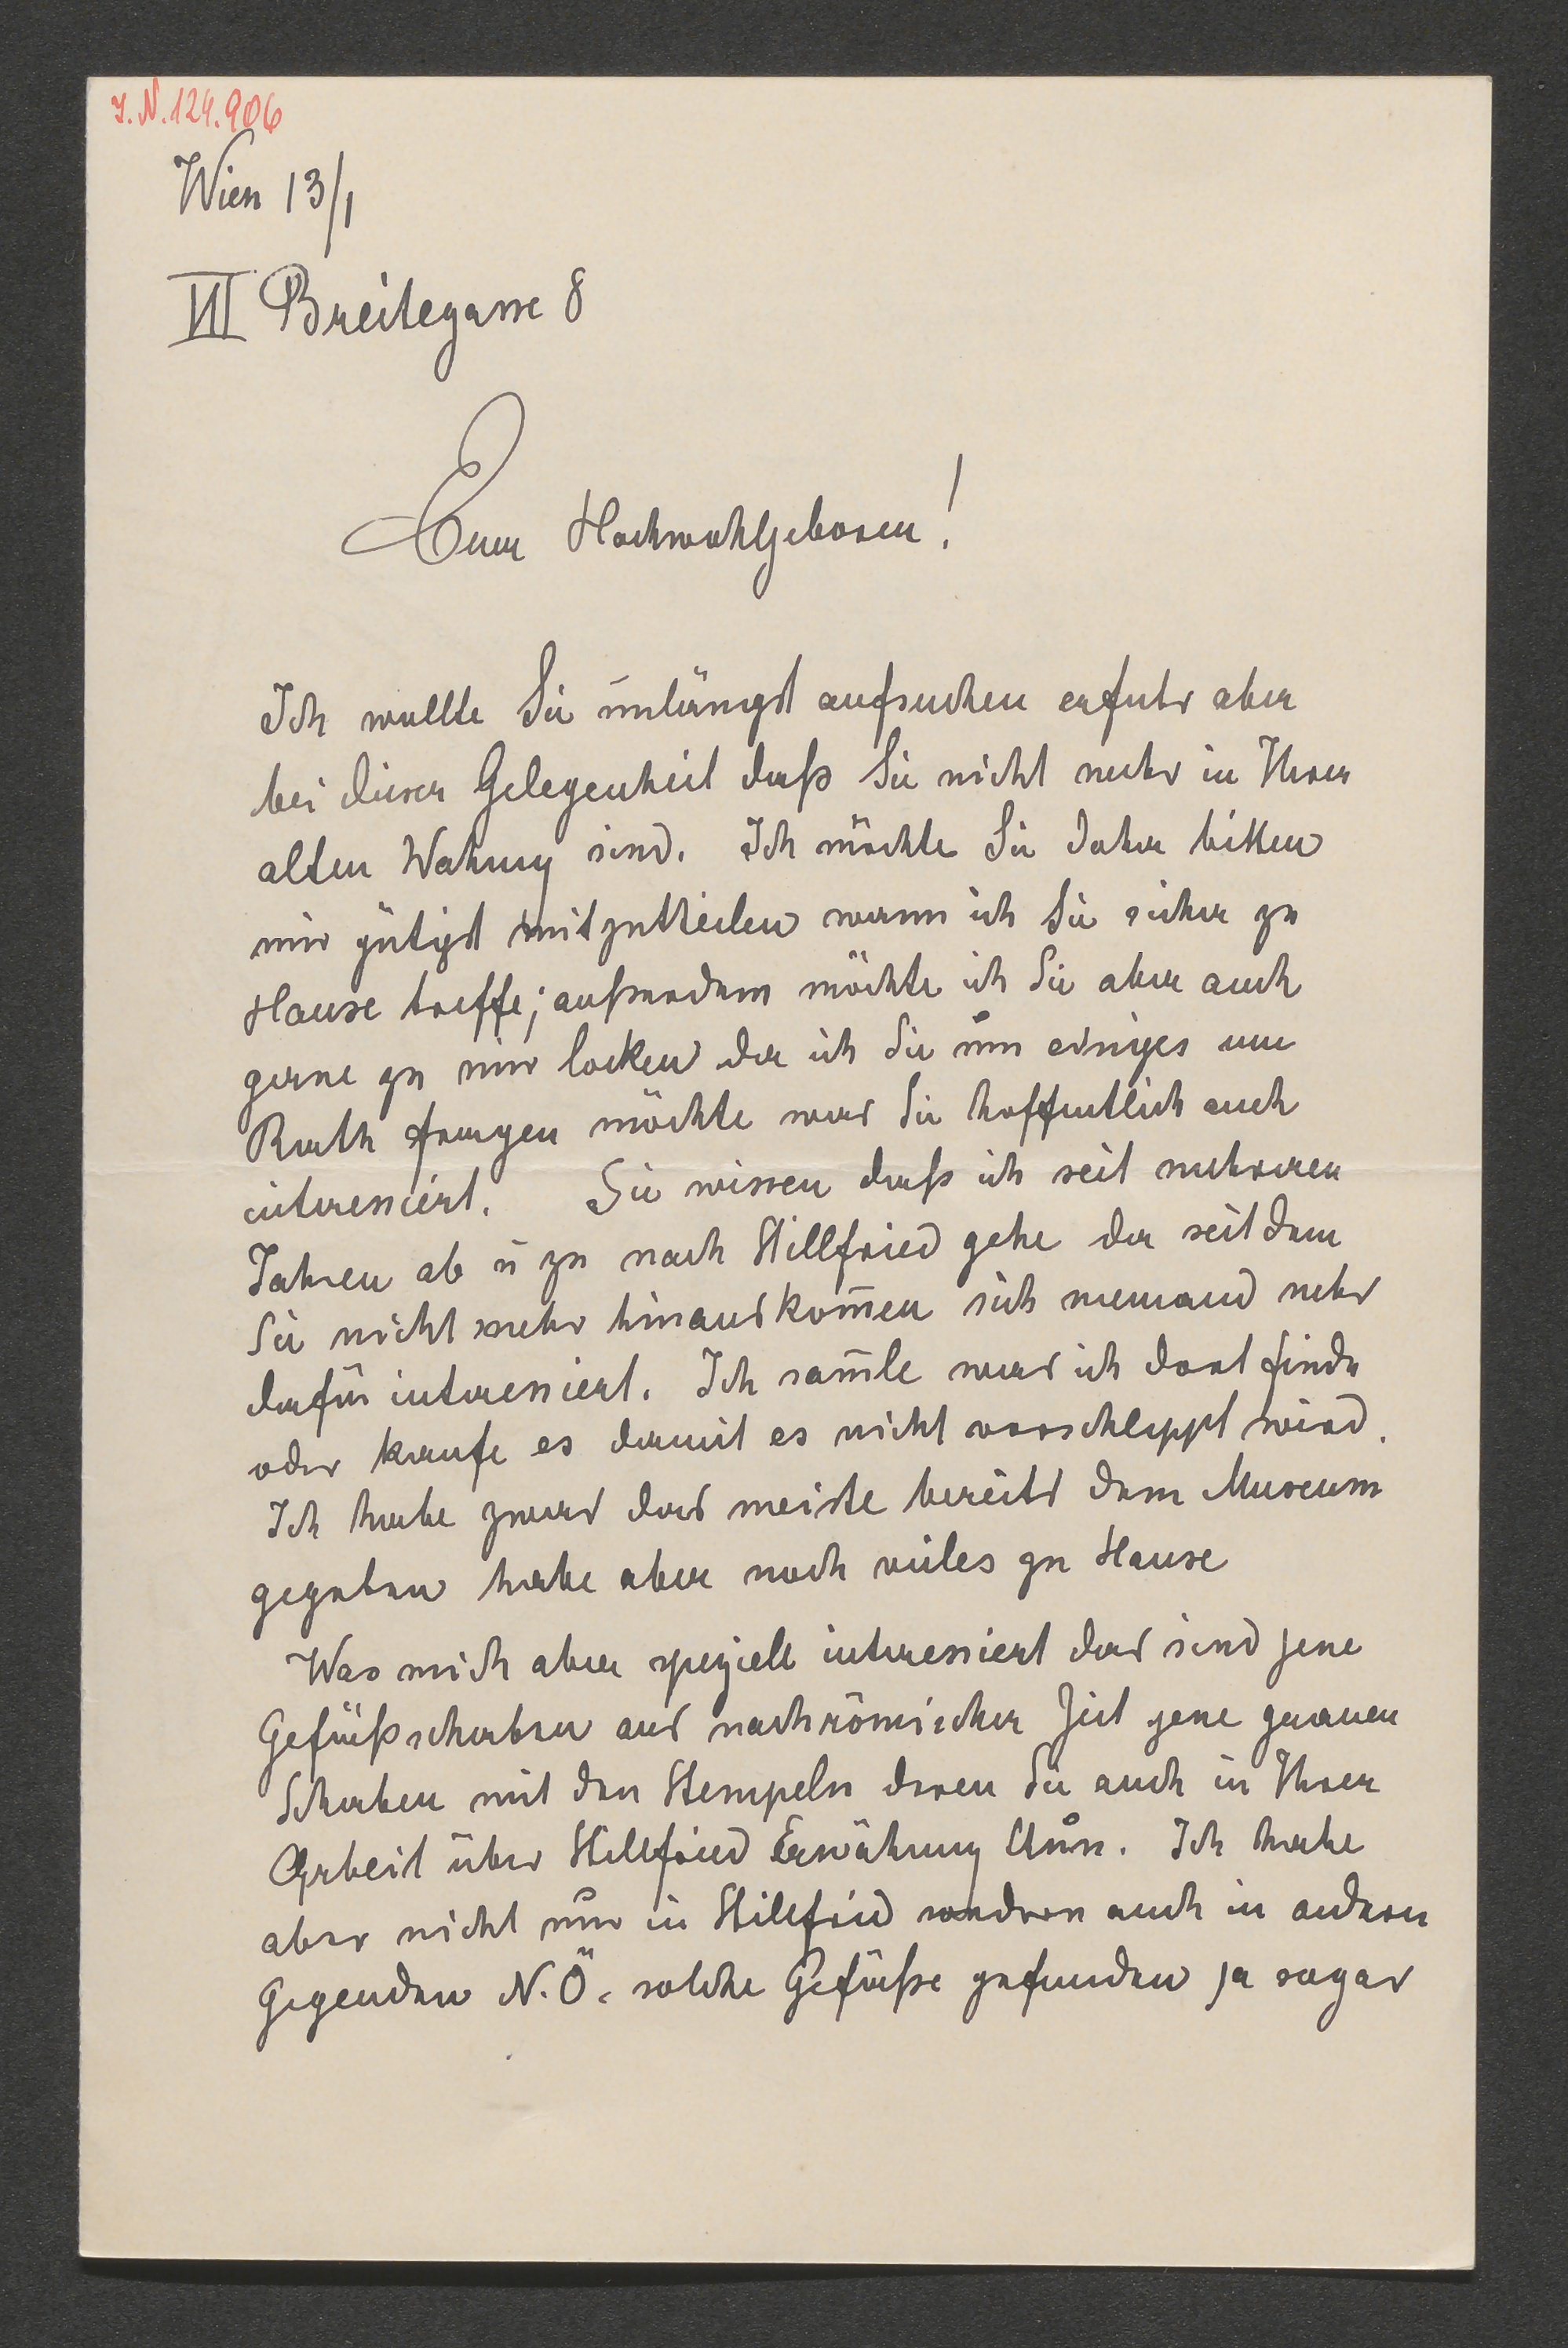 I.N. 124.906
Wien 13/1
VII Breitegasse 8
Euer Hochwohlgeboren!
Ich wollte Sie unlängst aufsuchen erfuhr aber
bei dieser Gelegenheit daß Sie nicht mehr in Ihrer
alten Wohnung sind. Ich möchte Sie daher bitten
mir gütigst mitzutheilen wann ich Sie sicher zu
Hause treffe; außerdem möchte ich Sie aber auch
gerne zu mir locken da ich Sie um einiges um
Rath fragen möchte was Sie hoffentlich auch
interessiert. Sie wissen daß ich seit mehreren
Jahren ab u zu nach Stillfried gehe da seitdem
Sie nicht mehr hinauskom̅en sich niemand mehr
dafür interessiert. Ich sam̅le was ich dort finde
oder kaufe es damit es nicht verschleppt wird.
Ich habe zwar das meiste bereits dem Museum
gegeben habe aber noch vieles zu Hause
Was mich aber speziell interessiert das sind jene
Gefäßscherben aus nachrömischer Zeit jene grauen
Scherben mit den Stempeln deren Sie auch in Ihrer
Arbeit über Stillfried Erwähnung thun. Ich habe
aber nicht nur in Stillfried sondern auch in andern
Gegenden N.Ö. solche Gefäße gefunden ja sogar